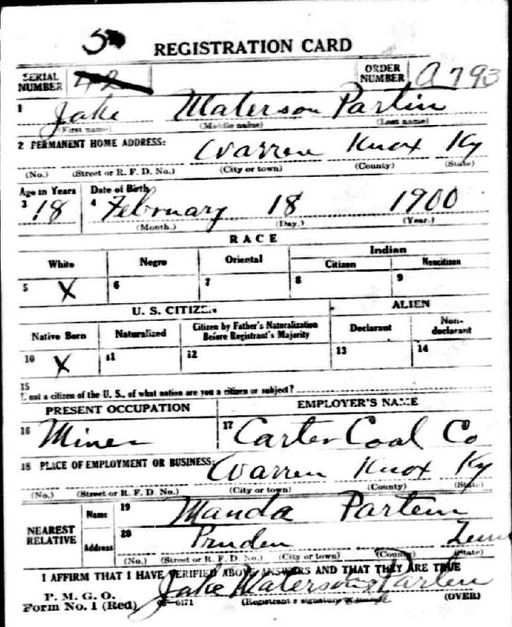 REGISTRATION CARD
SERIAL NUMBER 42 ORDER NUMBER A793
1 Jake Materson Partin
(First name) (Middle name) (Last name)
2 PERMANENT HOME ADDRESS: Warren Knox Ky
(No.) (Street or R. F. D. No.) (City or town) (County) (State)
Age in Years Date of Birth
3 18 4 February 18 1900
(Month.) (Day.) (Year.)
RACE
White Negro Oriental Indian
Citizen Noncitizen
5 X 6 7 8 9
U. S. CITIZEN ALIEN
Native Born Naturalized Citizen by Father's Naturalization Before Registrant's Majority Declarant Non-declarant
10 X 11 12 13 14
15
If not a citizen of the U. S., of what nation are you a citizen or subject?
PRESENT OCCUPATION EMPLOYER'S NAME
16 Miner 17 Carter Coal Co
18 PLACE OF EMPLOYMENT OR BUSINESS: Warren Knox Ky
(No.) (Street or R. F. D. No.) (City or town) (County) (State)
NEAREST RELATIVE Name 19 Manda Partin
Address 20 Pruden Tenn
(No.) (Street or R. F. D. No.) (City or town) (County) (State)
I AFFIRM THAT I HAVE VERIFIED ABOVE ANSWERS AND THAT THEY ARE TRUE
P. M. G. O.
Form No. 1 (Red) 3—6171 Jake Materson Partin
(Registrant's signature or mark) (OVER)